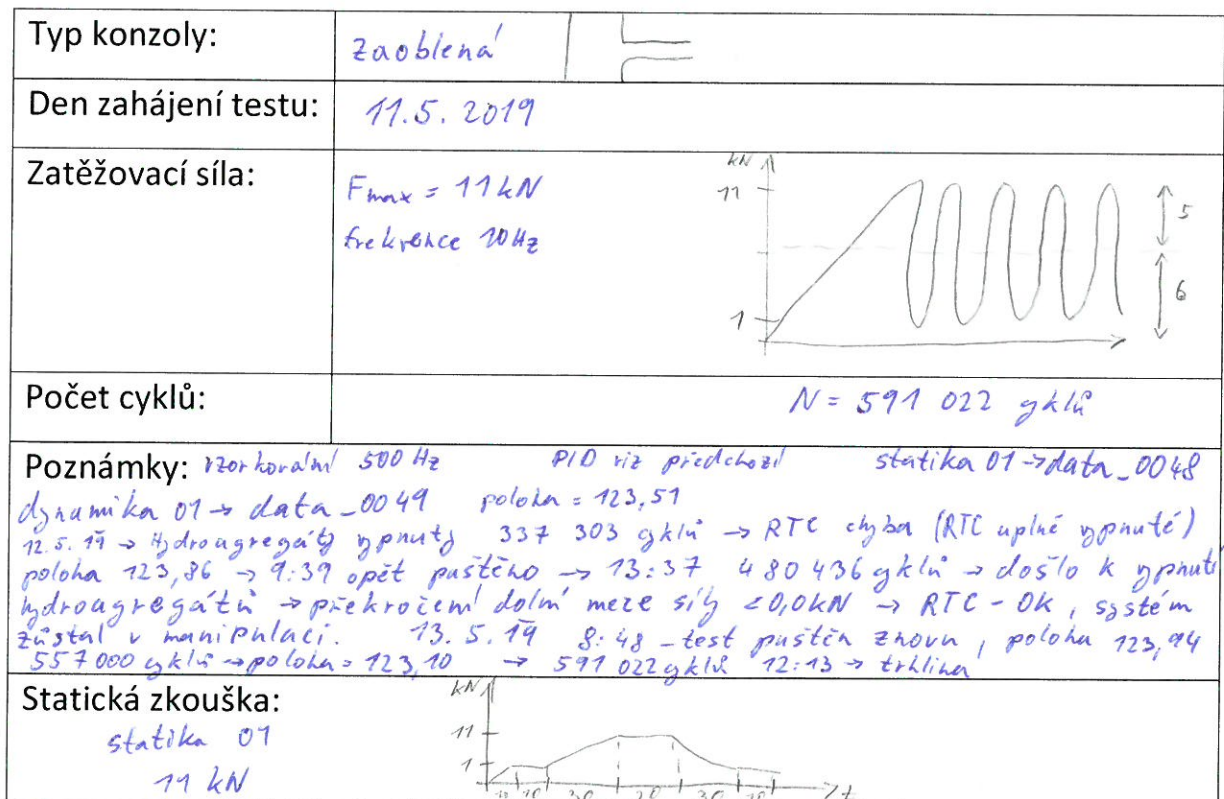 Typ konzoly: zaoblená
Den zahájení testu: 11.5. 2019
Zatěžovací síla: Fmax = 11 kN
frekvence 10 Hz
kN
11
5
6
1
Počet cyklů: N = 591 022 cyklů
Poznámky: vzorkování 500 Hz PID viz předchozí statika 01 → data_0048
dynamika 01 → data_0049 poloha = 123,51
12.5.19 → Hydroagregáty vypnuty 337 303 cyklů → RTC chyba (RTC uplně vypnuté)
poloha 123,86 → 9:39 opět puštěno → 13:37 480 436 cyklů → došlo k vypnutí
hydroagregátů → překročení dolní meze síly <0,0kN → RTC - OK, systém
zůstal v manipulaci. 13. 5. 19 8:48 - test puštěn znovu, poloha 123,94
557 000 cyklů → poloha = 123,10 → 591 022 cyklů 12:13 → trhlina
Statická zkouška:
statika 01
11 kN
kN
11
1
10 10 30 20 30 10 t